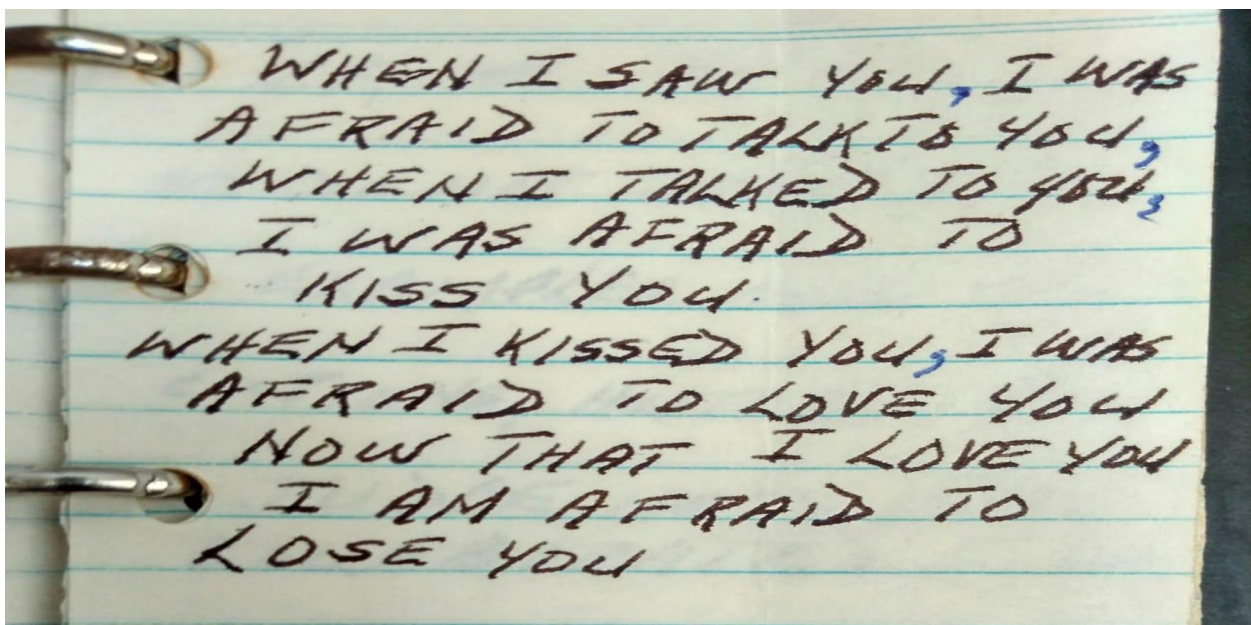 WHEN I SAW YOU, I WAS
AFRAID TO TALK TO YOU,
WHEN I TALKED TO YOU,
I WAS AFRAID TO
KISS YOU.
WHEN I KISSED YOU, I WAS
AFRAID TO LOVE YOU
NOW THAT I LOVE YOU
I AM AFRAID TO
LOSE YOU